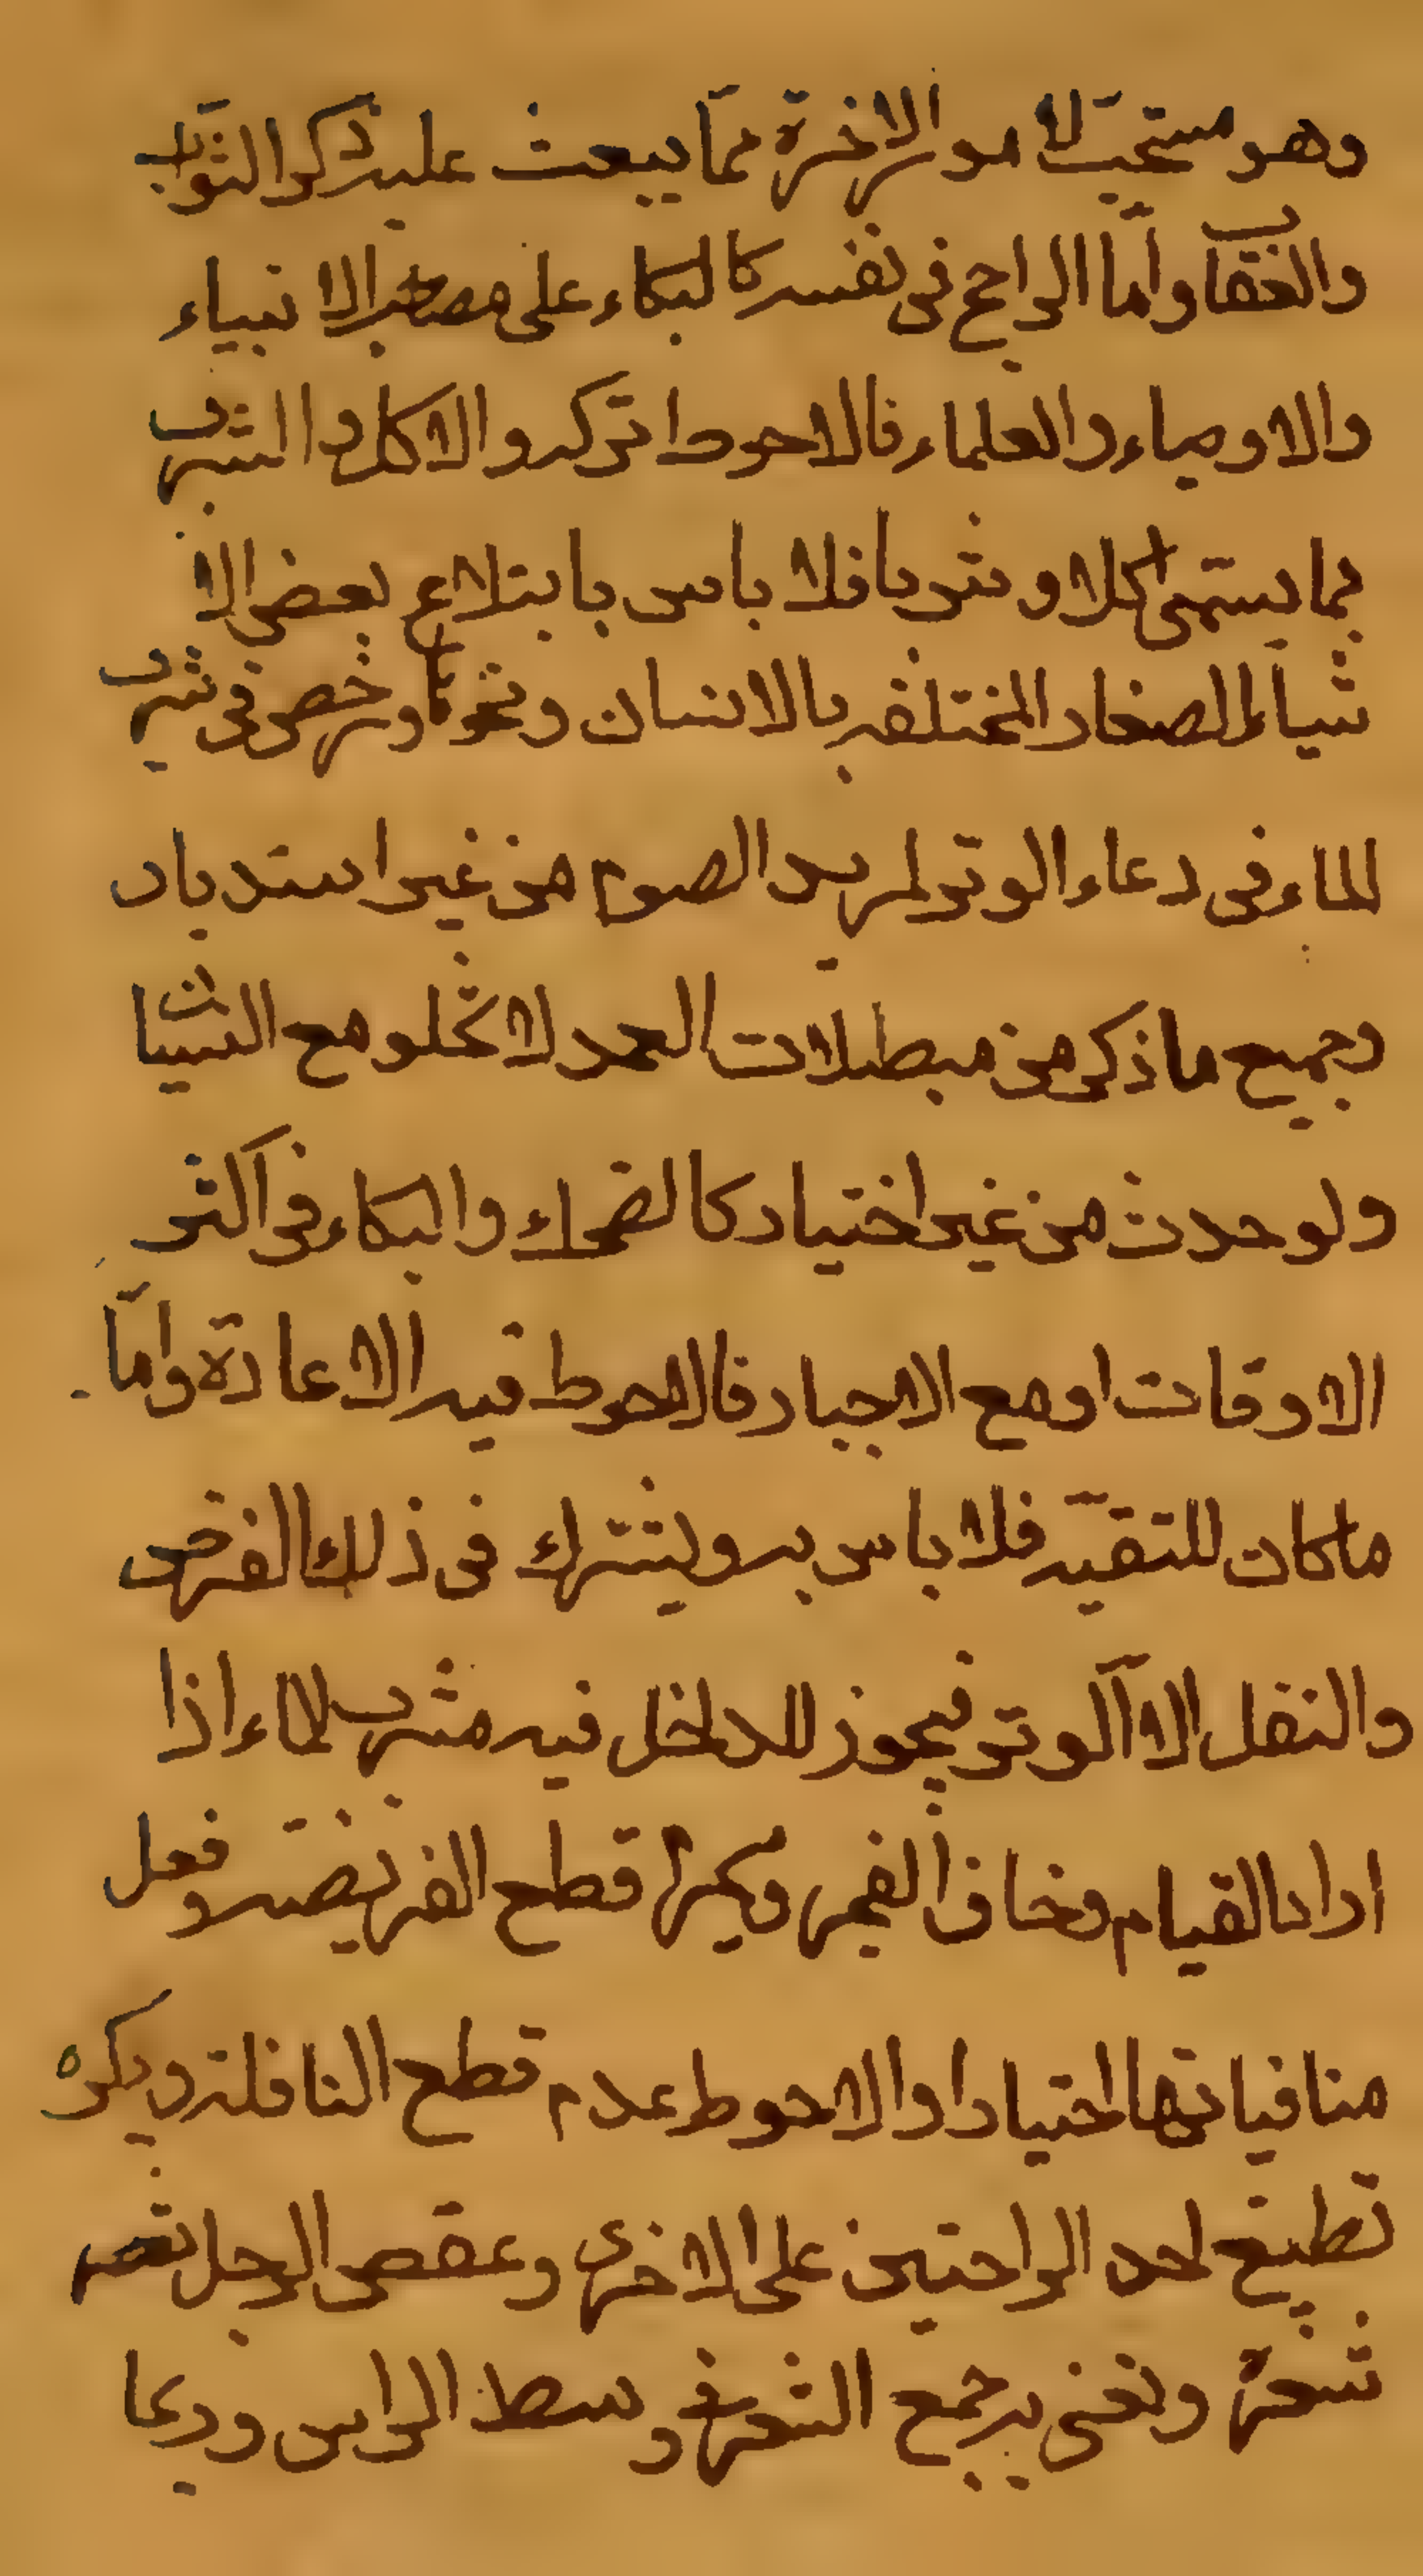 وهو مستحب لا مور الاخرة مما يبعث عليه ذكر الثواب
والعقاب واما الراجح في نفسه كالبكاء على مصائب الانبياء
والاوصياء والعلماء فالاحوط تركه والاكل والشرب
بما يسمى اكلا وشربا فلا باس بابتلاع بعض الا
شياء الصغار المختلفه بالاسنان ونحوها ورخص في شرب
الماء في دعاء الوتر لمريد الصوم من غير استدبار
وجميع ما ذكر من مبطلات العمد لا تخلو مع النسيان
ولو حدث من غير اختيار كالضحك والبكاء في اكثر
الاوقات او مع الاجبار فالاحوط فيه الاعادة واما
ما كان للتقيه فلا باس به ويشترك في ذلك الفرض
والنفل الا الوتر فيجوز للداخل فيه شرب الماء اذا
اراد القيام وخاف الفجر ويحرم قطع الفريضه وفعل
منافياتها اختيارا والاحوط عدم قطع النافلة ويكره
تطبيق احد الراحتين على الاخرى وعقص الرجل
شعره ونعني به جمع الشعر في وسط الراس وربما